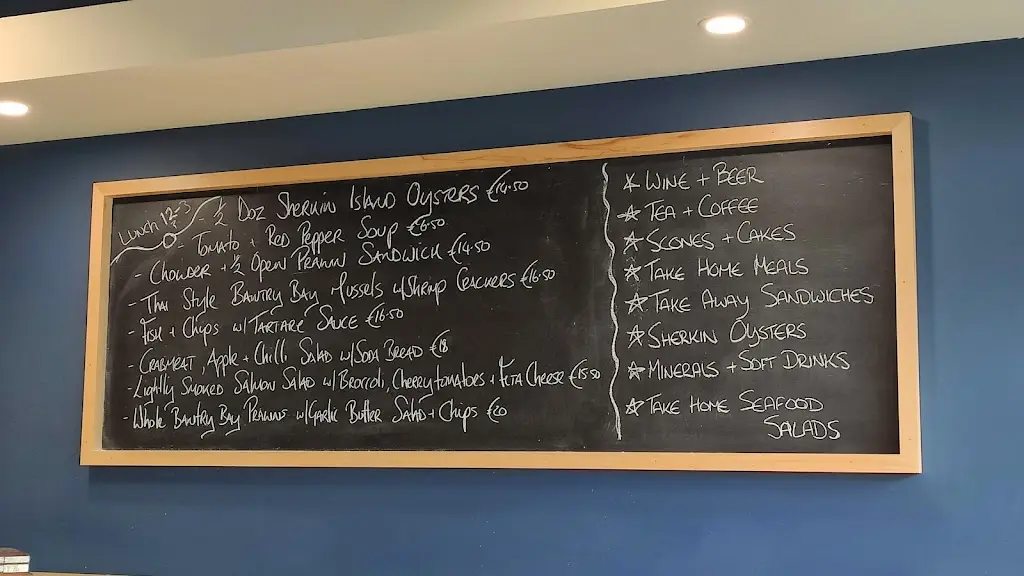 Lunch 12-3
- ½ Doz Sherkin Island Oysters €14.50
- Tomato + Red Pepper Soup €6.50
- Chowder + ½ Open Prawn Sandwich €14.50
- Thai Style Bantry Bay Mussels w/Shrimp Crackers €16.50
- Fish + Chips w/Tartare Sauce €16.50
- Crabmeat, Apple + Chilli Salad w/Soda Bread €18
- Lightly Smoked Salmon Salad w/Broccoli, Cherrytomatoes + Feta Cheese €15.50
- Whole Bantry Bay Prawns w/Garlic Butter Salad + Chips €20
☆ Wine + Beer
☆ Tea + Coffee
☆ Scones + Cakes
☆ Take Home Meals
☆ Take Away Sandwiches
☆ Sherkin Oysters
☆ Minerals + Soft Drinks
☆ Take Home Seafood
Salads